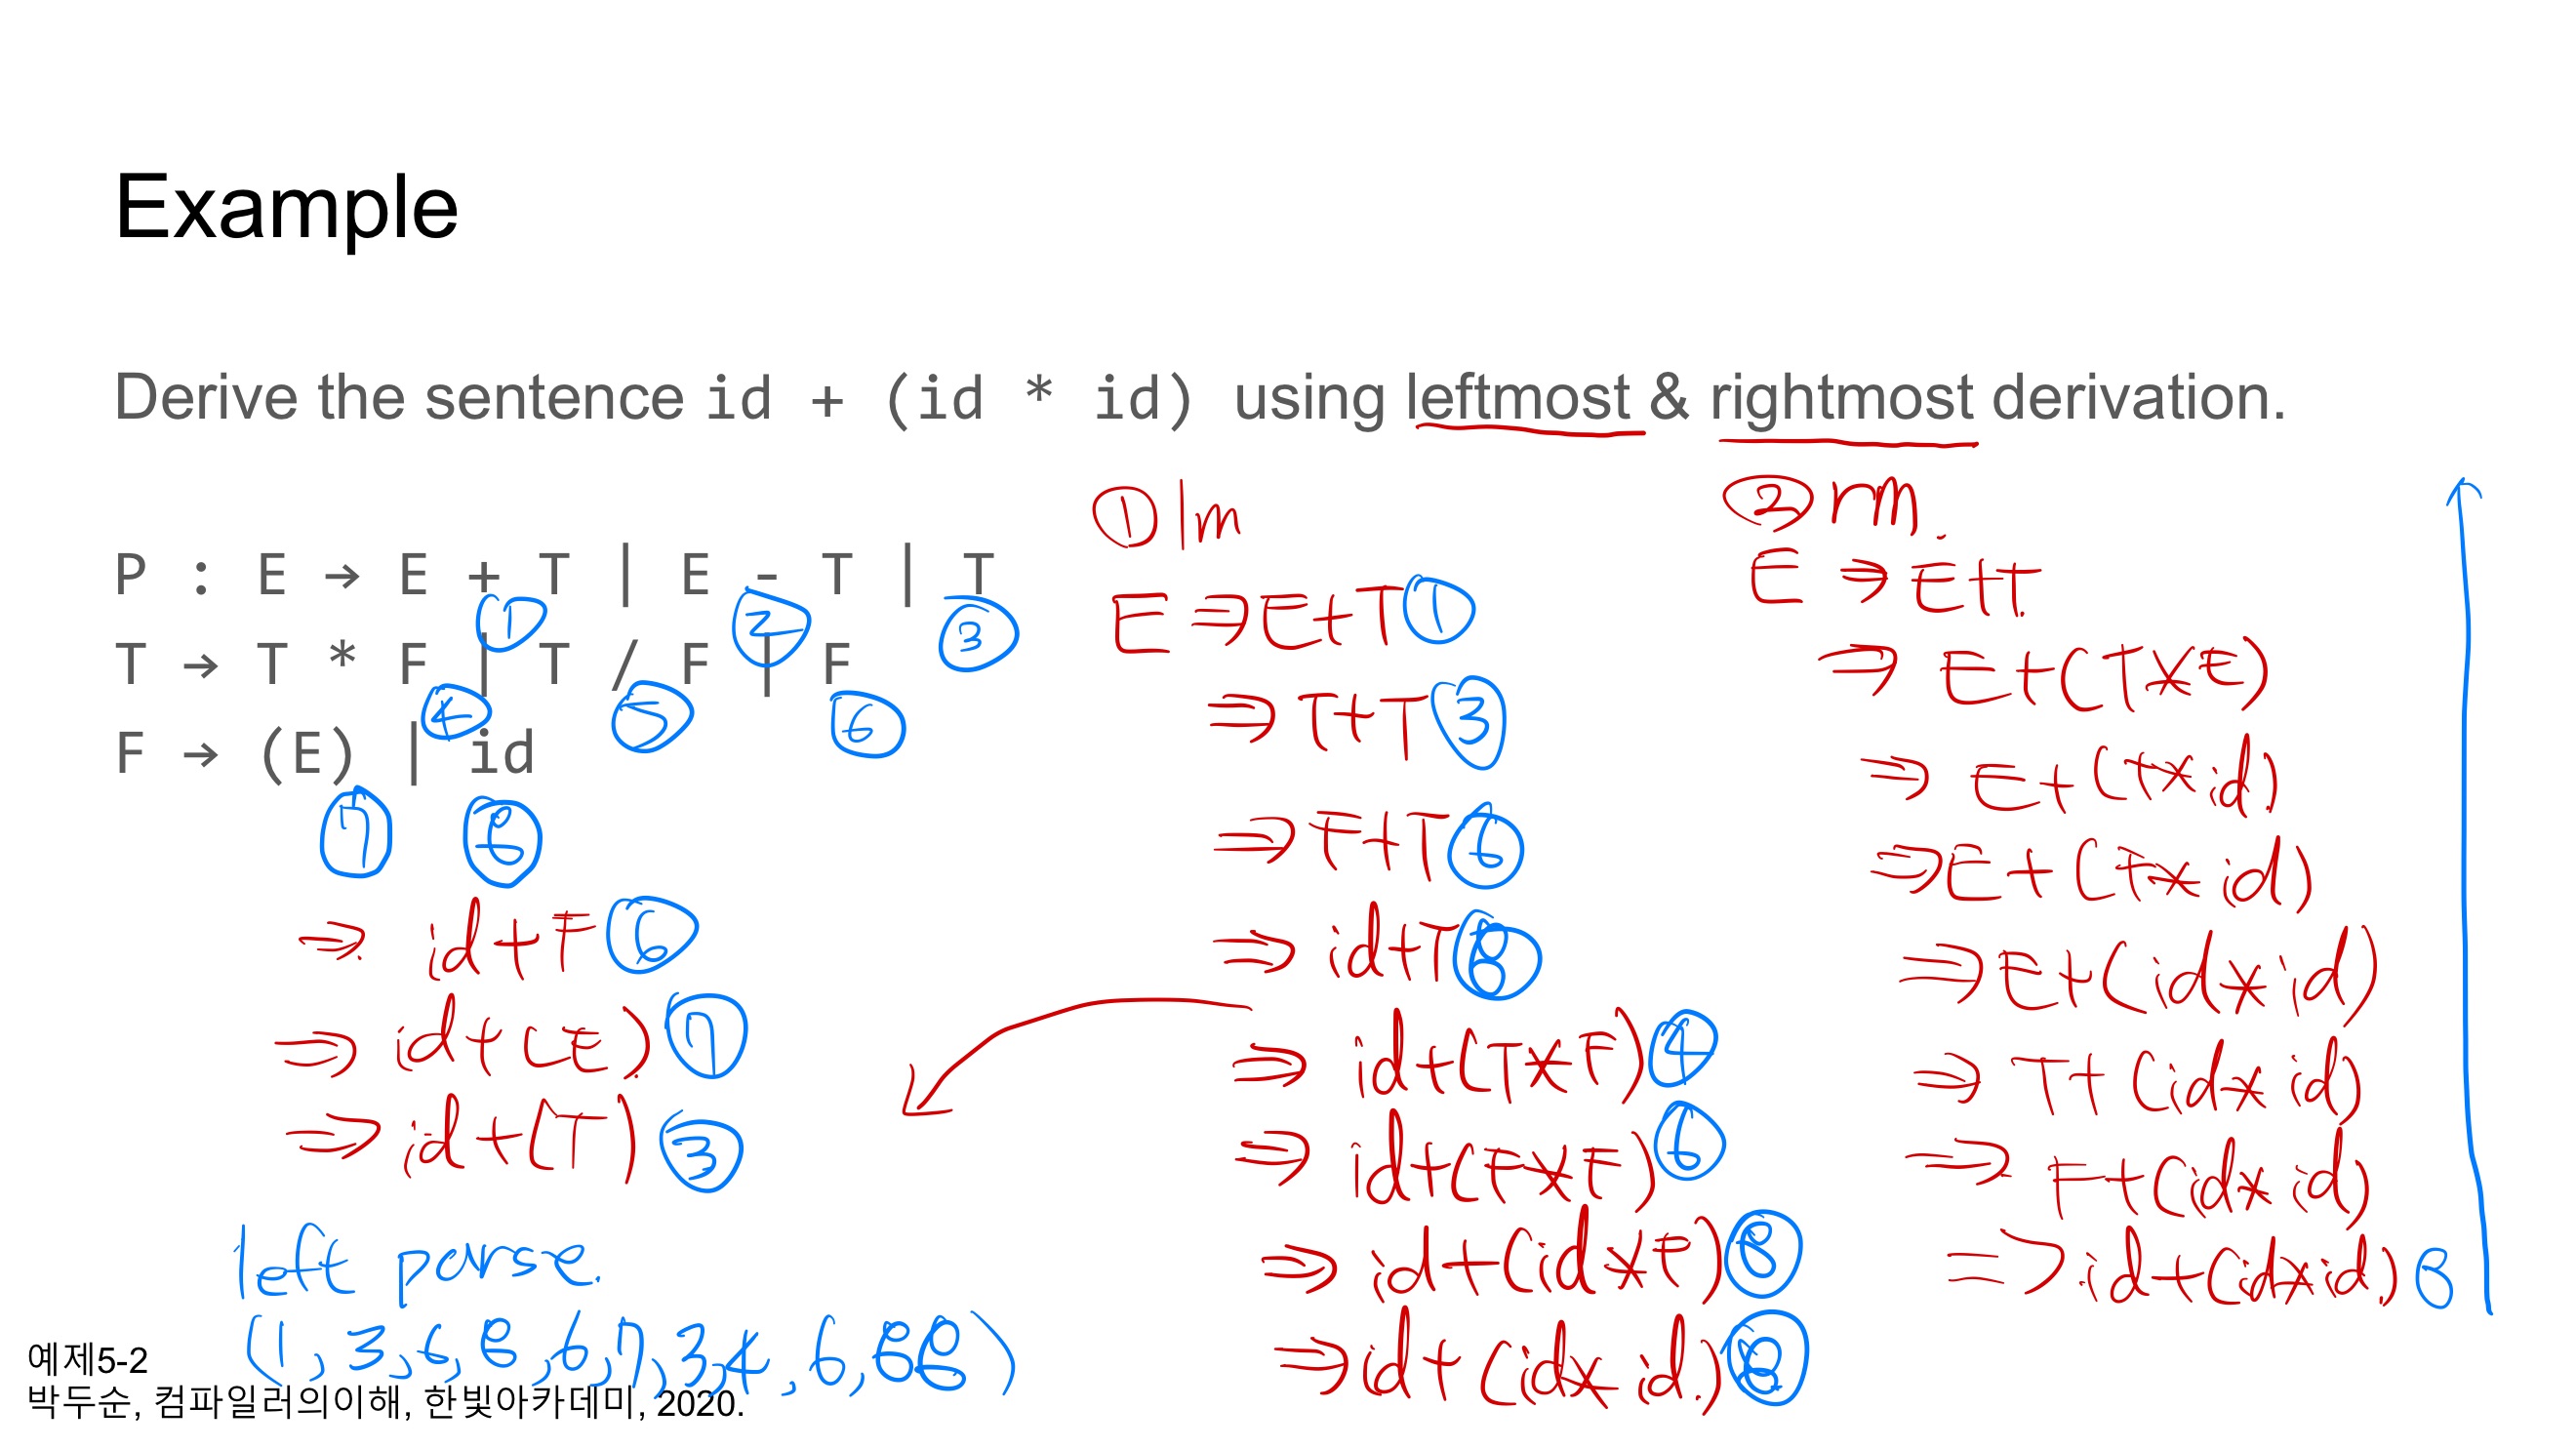 Example
Derive the sentence id + (id * id) using leftmost & rightmost derivation.
P : E → E + T | E - T | T
① ② ③
T → T * F | T / F | F
④ ⑤ ⑥
F → (E) | id
⑦ ⑧
① lm
E ⇒ E+T ①
⇒ T+T ③
⇒ F+T ⑥
⇒ id+T ⑧
⇒ id+F ⑥
⇒ id+(E) ⑦
⇒ id+(T) ③
⇒ id+(T*F) ④
⇒ id+(F*F) ⑥
⇒ id+(id*F) ⑧
⇒ id+(id*id) ⑧
② rm.
E ⇒ E+T
⇒ E+(T*F)
⇒ E+(T*id)
⇒ E+(F*id)
⇒ E+(id*id)
⇒ T+(id*id)
⇒ F+(id*id)
⇒ id+(id*id) 8
left parse.
(1, 3, 6, 8, 6, 7, 3, 4, 6, 8 8)
예제5-2
박두순, 컴파일러의이해, 한빛아카데미, 2020.